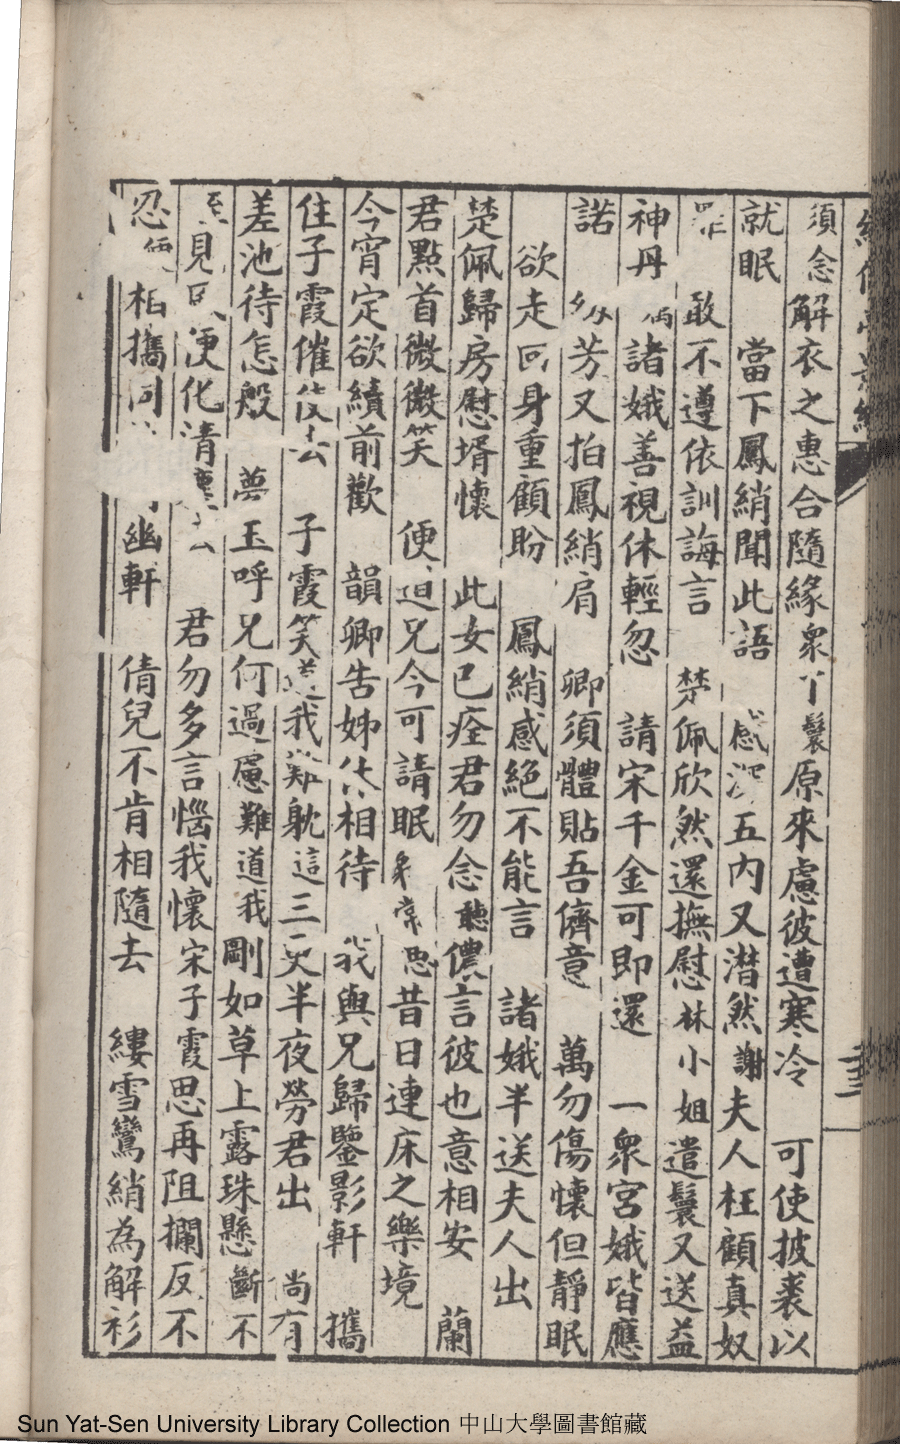 須念解衣之惠合隨緣衆丫鬟原來慮彼遭寒冷 可使披裘以
就眠 當下鳳綃聞此語 感深五內又潜然謝夫人枉顧真奴
敢不遵依訓誨言 楚佩欣然還撫慰林小姐遣鬟又送益
神丹 諸娥善視休輕忽 請宋千金可即還 一衆宮娥皆應
諾 芳又拍鳳綃肩 卿須體貼吾儕意 萬勿傷懷但靜眠
欲走回身重顧盼 鳳綃感絕不能言 諸娥半送夫人出
楚佩歸房慰壻懷 此女已痊君勿念聽儂言彼也意相安 蘭
君點首微微笑 便道兄今可請眠 常思昔日連床之樂境
今宵定欲續前歡 韻卿告姊休相待 我與兄歸鑒影軒 攜
住子霞催伎去 子霞笑道我難躭這三更半夜勞君出 尚有
差池待怎般 夢玉呼兄何過慮難道我剛如草上露珠懸斷不
見便化清塵去 君勿多言惱我懷宋子霞思再阻攔反不
忍 相攜同 幽軒 倩兒不肯相隨去 縷雪鸞綃為解衫
Sun Yat-Sen University Library Collection 中山大學圖書館藏